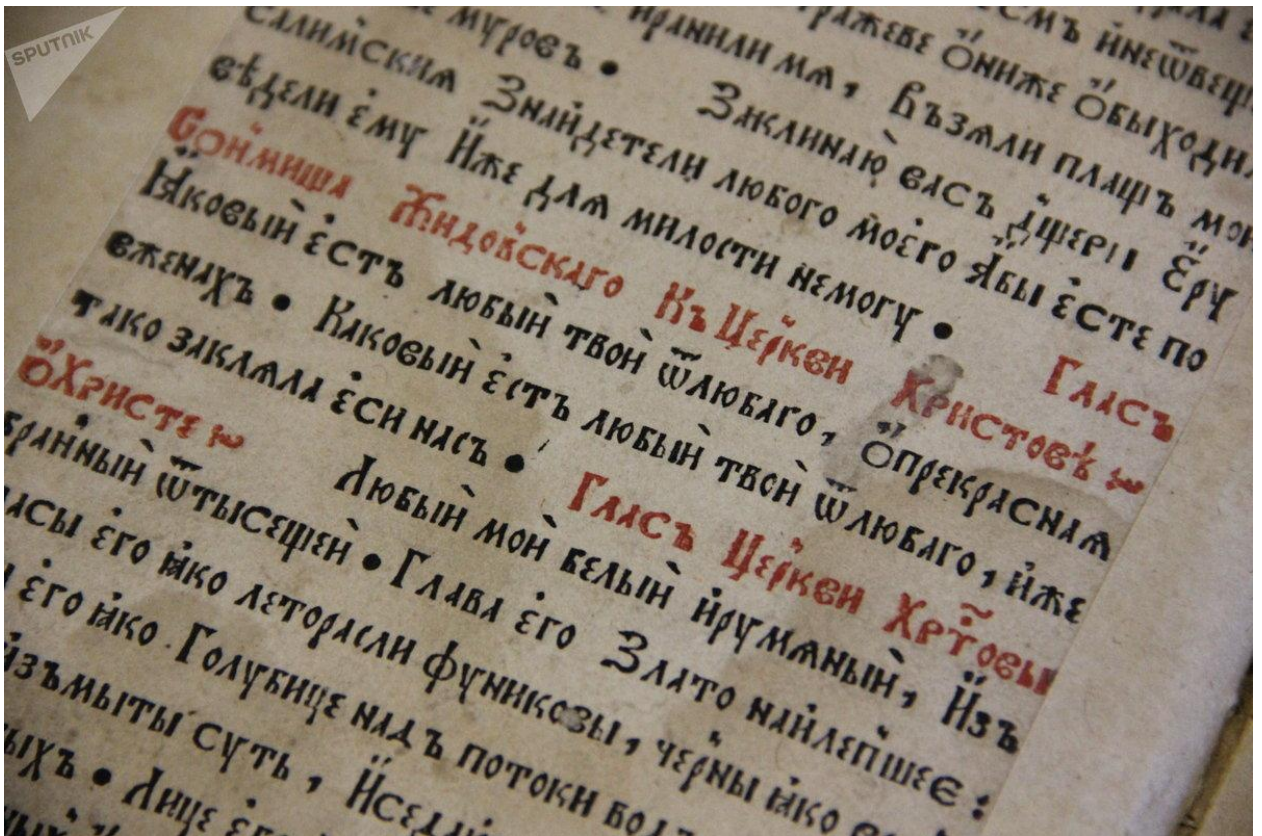 емъ инеѿвещ
ражеве Ониже Обыходил
ранили мѧ, Възѧли плащъ мои
е муровъ • Заклинаю васъ дщери Еру
салимскиѧ Знайдетели любого моего Абы есте по
вѣдели ему Иже длѧ милости немогу • Гласъ
Сонмища Жидовскаго Къ Церкви Христовѣ ~
Ꙗковый естъ любый твой ѿлюбаго, Опрекраснаѧ
вженахъ • Каковый естъ любый твой ѿлюбаго, иже
тако заклѧла еси насъ • Гласъ Церкви Хрт҃овы
ОХристе ~ Любый мой белый ирумѧный, Изъ
бранный ѿтысещей • Глава его Злато найлепшее :
асы его ꙗко леторасли фуниковы, черны ꙗко
его ꙗко Голубице надъ потоки водъ
изъмыты суть, Иседѧ
ыхъ • Лице его
SPUTNIK